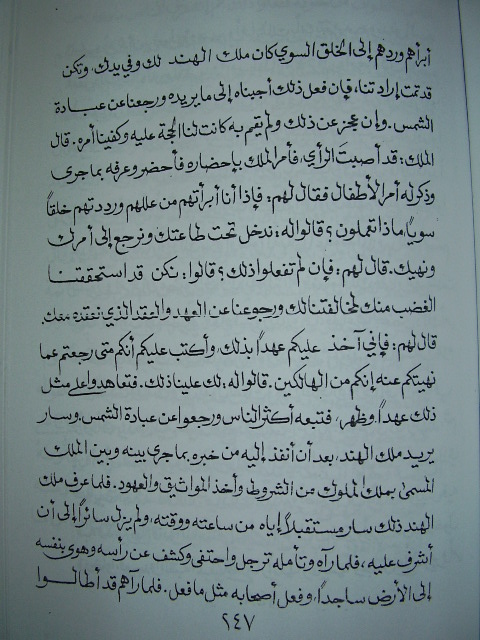 أبرأهم وردهم إلى الخلق السوي كان ملك الهند لك وفي يدك، وتكن
قد تمت إرادتنا، فإن فعل ذلك أجبناه إلى ما يريده ورجعنا عن عبادة
الشمس. وإن عجز عن ذلك ولم يقم به كانت لنا الحجة عليه وكفينا أمره. قال
الملك: قد أصبت الرأي، فأمر الملك بإحضاره فأحضر وعرفه بما جرى
وذكر له أمر الأطفال فقال لهم: فإذا أنا أبرأتهم من عللهم ورددتهم خلقاً
سوياً، ماذا تعملون؟ قالوا له: ندخل تحت طاعتك ونرجع إلى أمرك
ونهيك. قال لهم: فإن لم تفعلوا ذلك؟ قالوا: نكن قد استحققنا
الغضب منك لمخالفتنا لك ورجوعنا عن العهد والعقد الذي نعقده معك.
قال لهم: فإني آخذ عليكم عهداً بذلك، وأكتب عليكم أنكم متى رجعتم عما
نهيتكم عنه إنكم من الهالكين. قالوا له: لك علينا ذلك. فتعاهدوا على مثل
ذلك عهداً، وظهر، فتبعه أكثر الناس ورجعوا عن عبادة الشمس. وسار
يريد ملك الهند، بعد أن أنفذ إليه من خبره بما جرى بينه وبين الملك
المسمى بملك الملوك من الشروط وأخذ المواثيق والعهود. فلما عرف ملك
الهند ذلك سار مستقبلاً إياه من ساعته ووقته، ولم يزل سائراً إلى أن
أشرف عليه، فلما رآه وتأمله ترجل واحتفى وكشف عن رأسه وهوى بنفسه
إلى الأرض ساجداً، وفعل أصحابه مثل ما فعل. فلما رآهم قد أطالوا
٢٤٧